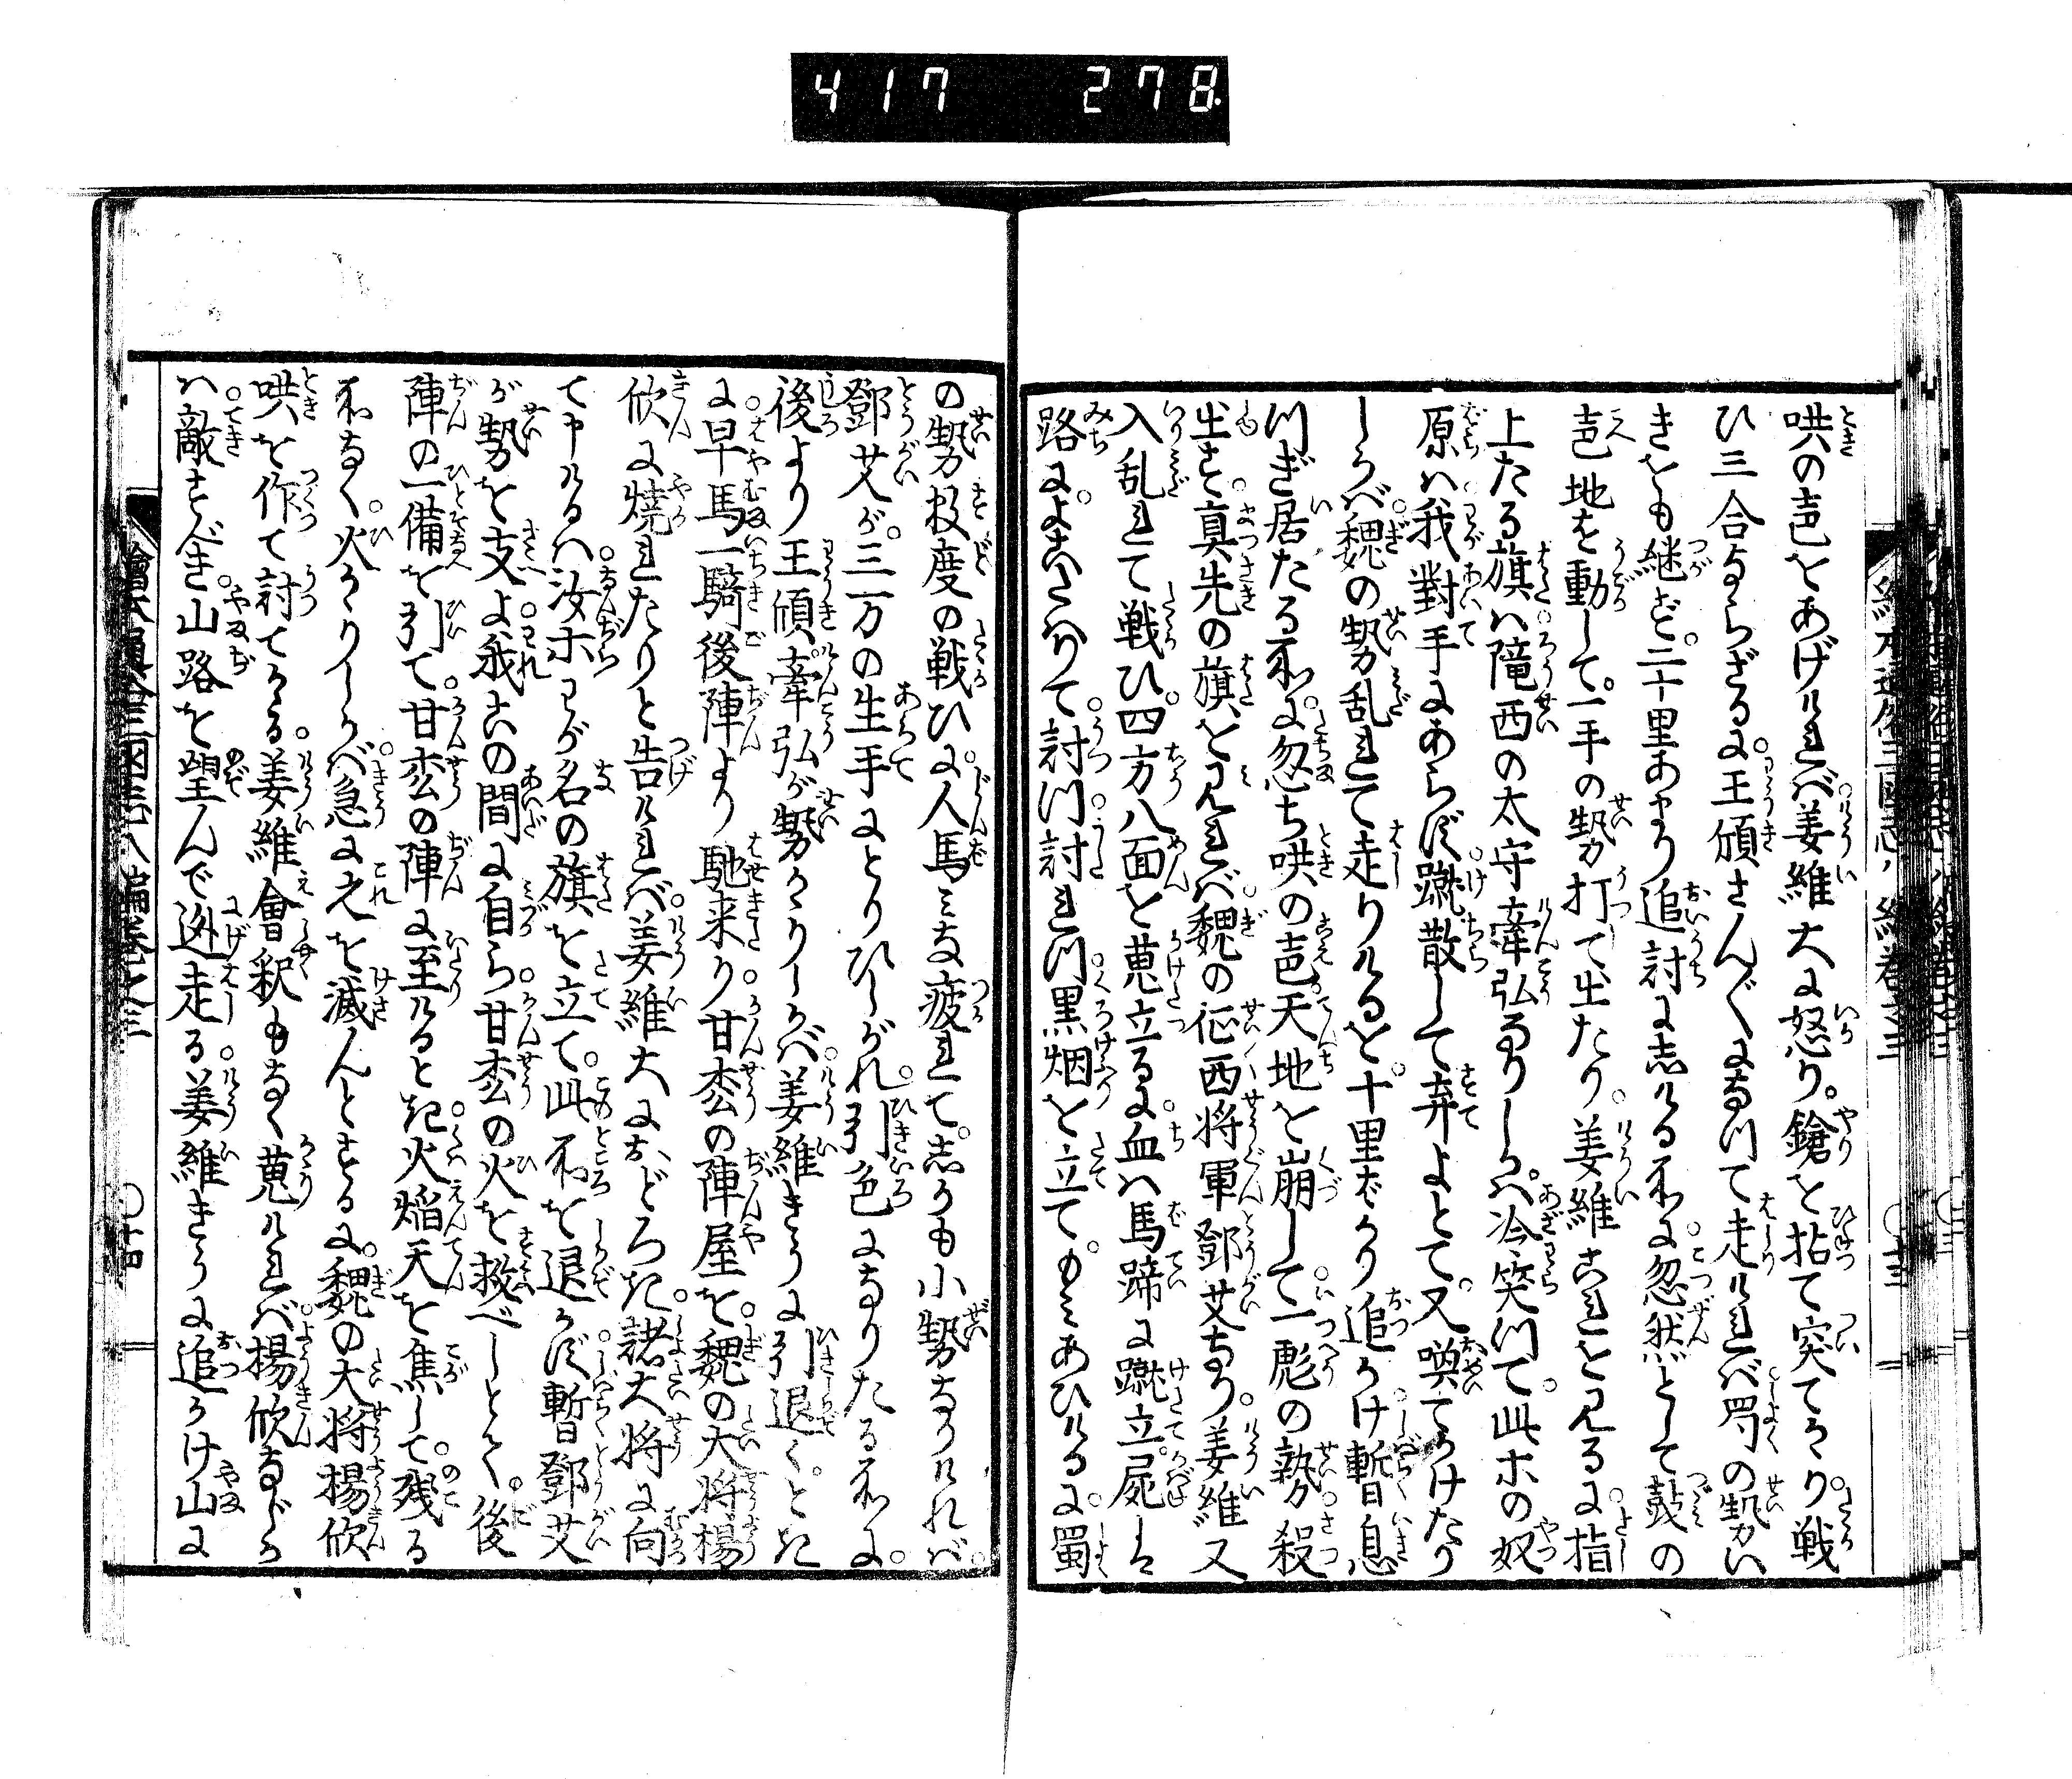 417 278
哄の声をあげけれバ姜維大に怒り。鎗を拈て突てかゝり。戦
ひ三合ならざるに。王頎さん〴〵になつて走りけれバ。蜀の勢ハ
きをも継ず。二十里あまり追討にしける所に。忽然として鼓の
声地を動して。一手の勢打て出たり。姜維これを見るに。指
上たる旗ハ。隴西の太守牽弘なりしかバ。冷笑つて。此ホの奴
原ハ。我對手にあらず。蹴散して弃よとて。又喚てかけたり
しかバ。魏の勢乱れて走りけるを。十里ばかり追かけ。暫く息
つぎ居たる所に。忽ち哄の声。天地を崩して。一彪の勢。殺
出す。真先の旗を見れバ。魏の征西将軍鄧艾なり。姜維又
入乱れて戦ひ。四方八面を蒐立るに。血ハ馬蹄に蹴立。屍ハ
路によこたハりて。討つ。討れつ。黒烟を立て。もミあひけるに。蜀
の勢投度の戦ひに。人馬ミな疲れて。しかも小勢なりけれバ。
鄧艾が。三万の生手にとりひしがれ。引色になりたる所に。
後より王頎。牽弘が勢かゝりしかバ。姜維きうに引退く。とき
に。早馬一騎後陣より馳来り。甘枩の陣屋を。魏の大将楊
欣に焼れたりと告けれバ。姜維大におどろき。諸大将に向
て申けるハ。汝ホわが名の旗を立て。此所を退かず。暫く鄧艾
が勢を支よ。我この間に自ら。甘枩の火を救べしとて。後
陣の一備を引て。甘枩の陣に至けるとき。火焔天を焦して。残る
所なく。火かゝりしかバ。急に之を滅んとするに。魏の大将楊欣
哄を作て討てかゝる。姜維會釈もなく蒐りけれバ。楊欣なじ
ハ。敵すべき。山路を望んで迯走る。姜維きうに追かけ山に
繪本通俗三國志八編巻之三
〇十三
繪本通俗三國志八編巻之三
〇十四